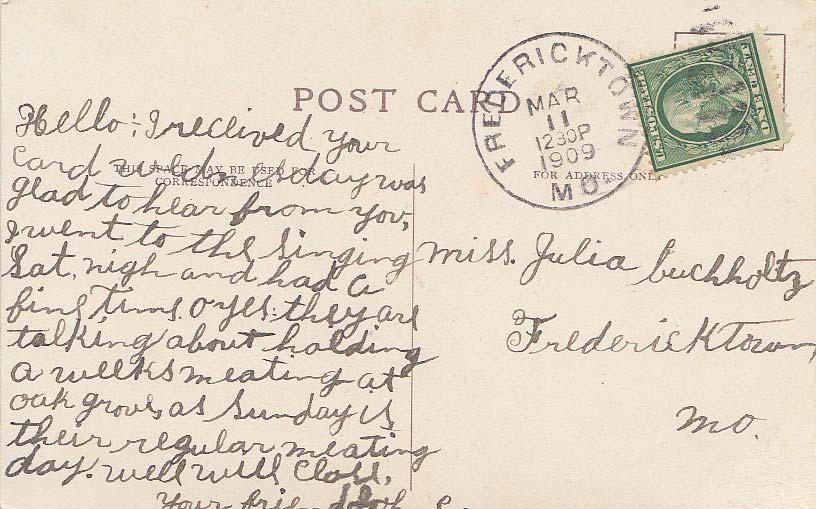 POST CARD
THIS SPACE MAY BE USED FOR
CORRESPONDENCE
FOR ADDRESS ONLY
FREDERICKTOWN
MAR
11
1230P
1909
MO.
U.S. POSTAGE
ONE CENT
Hello: I recieved your
card day was
glad to hear from you,
I went to the singing
Sat, nigh and had a
fine time. O yes: they are
talking about holding
a weeks meating at
oak grove, as Sunday is
their regular meating
day. well will close,
Your friend
Miss. Julia Buchholtz
Fredericktown,
Mo.